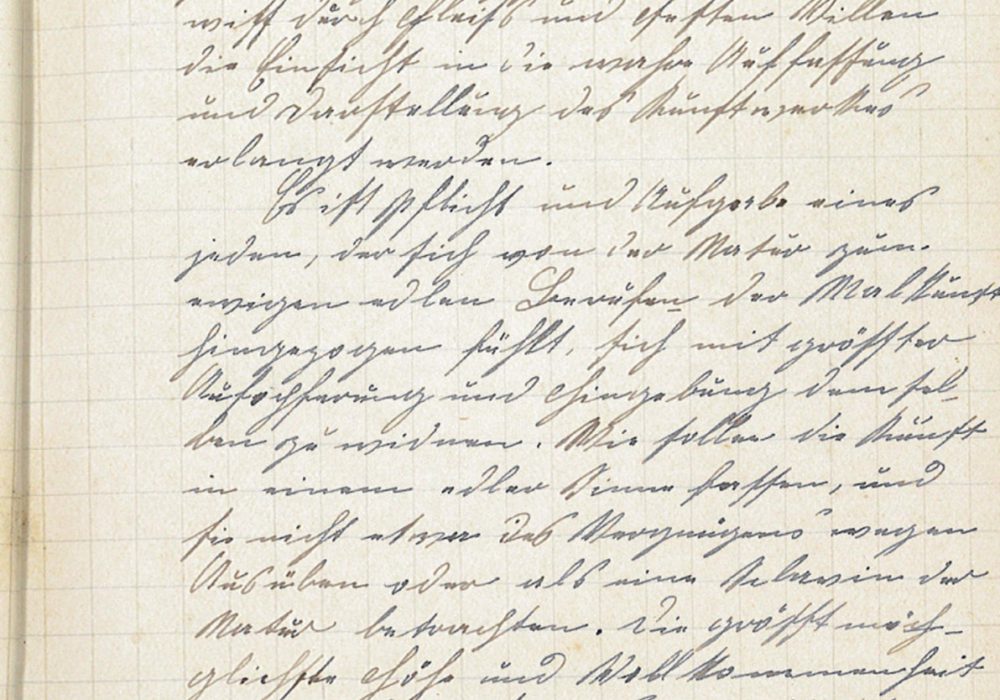 muss durch Fleiß und festen Willen
die Einsicht in die wahre Auffassung
und Darstellung des Kunstwerkes
erlangt werden.
Es ist Pflicht und Aufgabe eines
jeden, der sich von der Natur zum
ewigen edlen Berufen der Malkunst
hingezogen fühlt, sich mit größter
Aufopferung und Hingebung demsel-
ben zu widmen. Wir sollen die Kunst
in einem edler Sinne fassen, und
sie nicht etwa des Vergnügens wegen
Ausüben oder als eine Sclavin der
Natur betrachten. Die größt mög-
glichste Höhe und Vollkommenheit